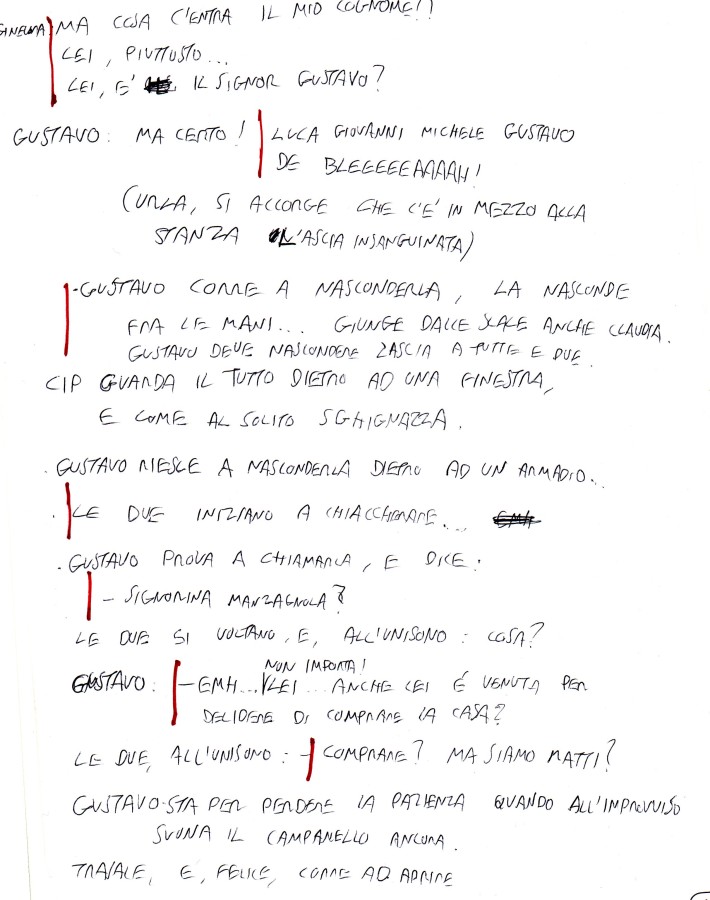 GINEVRA MA COSA C'ENTRA IL MIO COGNOME!?
LEI, PIUTTOSTO...
LEI, E' IL SIGNOR GUSTAVO?
GUSTAVO: MA CERTO! LUCA GIOVANNI MICHELE GUSTAVO
DE BLEEEEEAAAAH!
(URLA, SI ACCORGE CHE C'E' IN MEZZO ALLA
STANZA L'ASCIA INSANGUINATA)
-GUSTAVO CORRE A NASCONDERLA, LA NASCONDE
FRA LE MANI... GIUNGE DALLE SCALE ANCHE CLAUDIA.
GUSTAVO DEVE NASCONDERE L'ASCIA A TUTTE E DUE.
CIP GUARDA IL TUTTO DIETRO AD UNA FINESTRA,
E COME AL SOLITO SGHIGNAZZA.
. GUSTAVO RIESCE A NASCONDERLA DIETRO AD UN ARMADIO...
. LE DUE INIZIANO A CHIACCHIERARE...
. GUSTAVO PROVA A CHIAMARLA, E DICE:
- SIGNORINA MANZAGNOLA?
LE DUE SI VOLTANO, E, ALL'UNISONO: COSA?
NON IMPORTA!
GUSTAVO: -EMH... LEI... ANCHE LEI É VENUTA PER
DECIDERE DI COMPRARE LA CASA?
LE DUE, ALL'UNISONO: - COMPRARE? MA SIAMO MATTI?
GUSTAVO STA PER PERDERE LA PAZIENZA QUANDO ALL'IMPROVVISO
SUONA IL CAMPANELLO ANCORA.
, E, FELICE, CORRE AD APRIRE